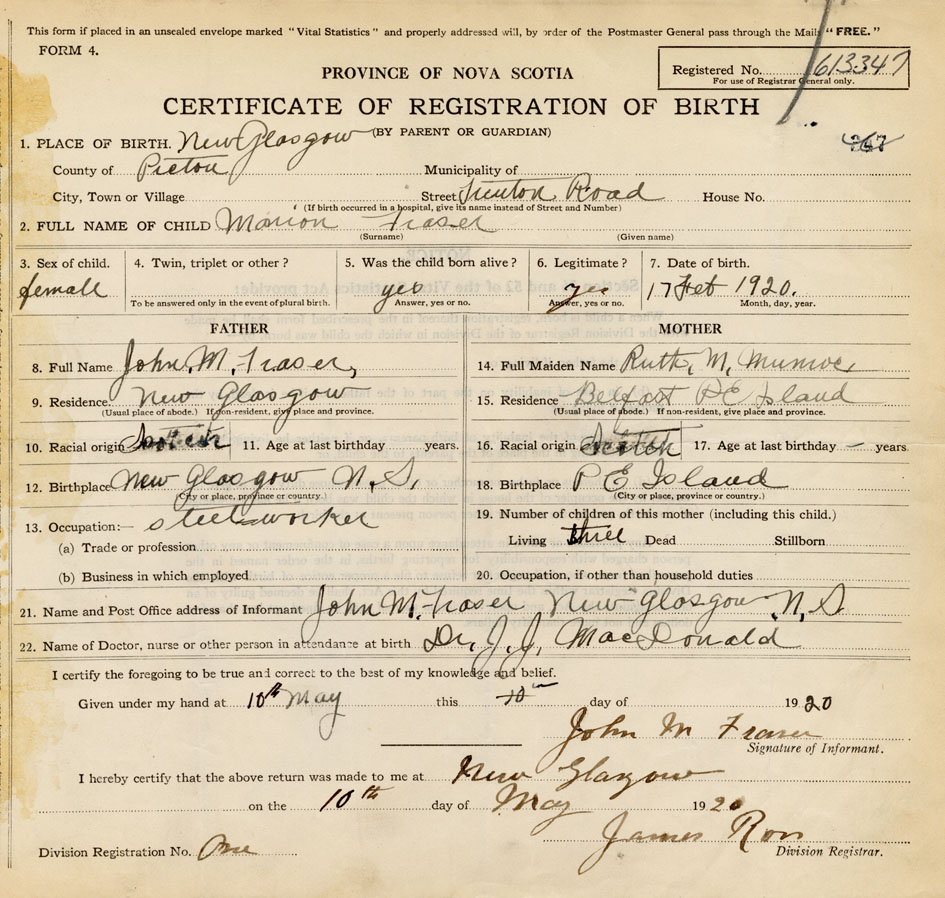 This form if placed in an unsealed envelope marked "Vital Statistics" and properly addressed will, by order of the Postmaster General pass through the Mails "FREE."
FORM 4.
Registered No. 613347
For use of Registrar General only.
PROVINCE OF NOVA SCOTIA
CERTIFICATE OF REGISTRATION OF BIRTH
(BY PARENT OR GUARDIAN)
1. PLACE OF BIRTH. New Glasgow
County of Pictou Municipality of
City, Town or Village Street Road House No.
(If birth occurred in a hospital, give its name instead of Street and Number)
2. FULL NAME OF CHILD Marion Fraser
(Surname) (Given name)
3. Sex of child. 4. Twin, triplet or other? 5. Was the child born alive? 6. Legitimate? 7. Date of birth.
female yes yes 17 Feb 1920.
To be answered only in the event of plural birth. Answer, yes or no. Answer, yes or no. Month, day, year.
FATHER MOTHER
8. Full Name John M. Fraser, 14. Full Maiden Name Ruth, M, Munroe,
9. Residence. New Glasgow 15. Residence Belfast P E Island
(Usual place of abode.) If non-resident, give place and province. (Usual place of abode.) If non-resident, give place and province.
10. Racial origin Scotch 11. Age at last birthday years. 16. Racial origin Scotch 17. Age at last birthday — years
12. Birthplace New Glasgow N.S. 18. Birthplace P E Island
(City or place, province or country.) (City or place, province or country.)
13. Occupation:— steel-worker 19. Number of children of this mother (including this child.)
(a) Trade or profession Living three Dead Stillborn
(b) Business in which employed 20. Occupation, if other than household duties
21. Name and Post Office address of Informant John M. Fraser New Glasgow N.S.
22. Name of Doctor, nurse or other person in attendance at birth Dr, J. J. MacDonald
I certify the foregoing to be true and correct to the best of my knowledge and belief.
Given under my hand at 10th May this 10th day of 1920
John M Fraser
Signature of Informant.
I hereby certify that the above return was made to me at New Glasgow
on the 10th day of May 1920
James Ross
Division Registration No. One Division Registrar.